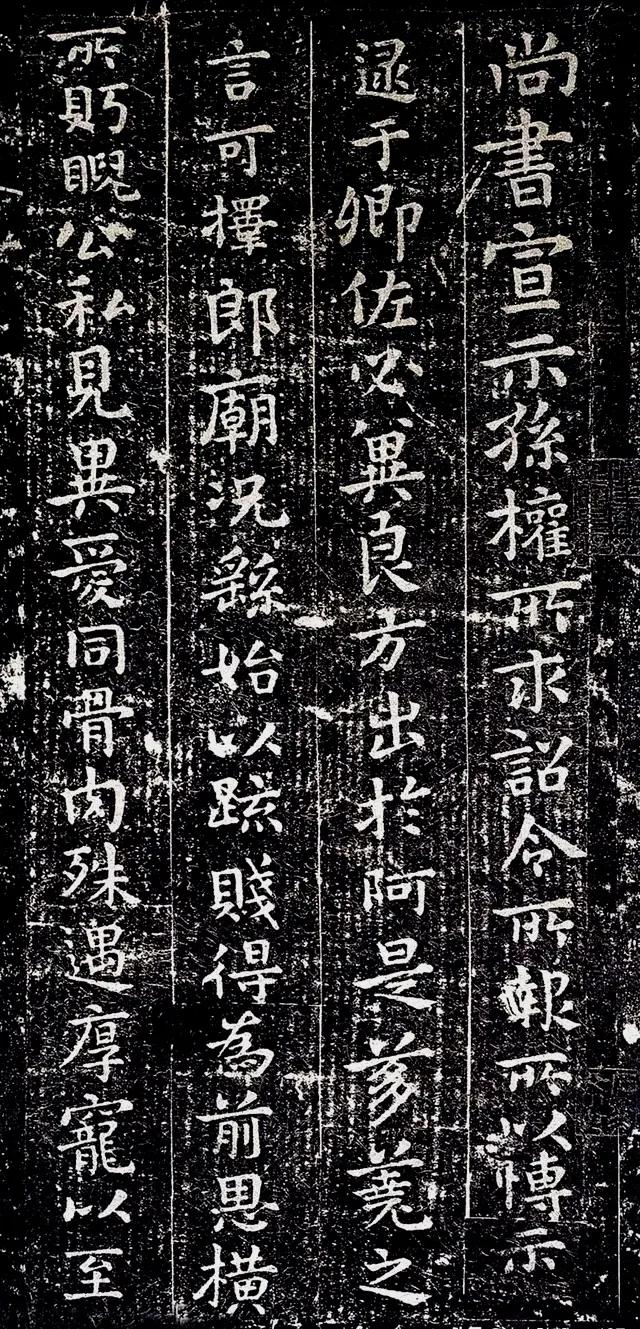 尚書宣示孫權所求詔令所報所以博示
逮于卿佐必冀良方出於阿是芻蕘之
言可擇郎廟況繇始以疏賤得為前恩橫
所䀡睨公私見異愛同骨肉殊遇厚寵以至